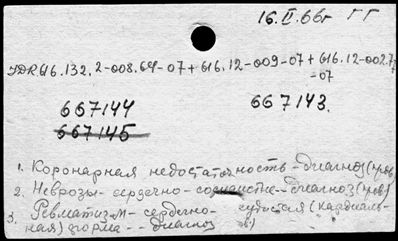 16.II.66г ГГ
УДК 616.132.2-008.64-07 + 616.12-009-07 + 616.12-002.77
-07
667144 667143.
667145
1. Коронарная недостаточность - диагноз (
2. Неврозы - сердечно - - диагноз
3. Ревматизм - сердечно-
ная) форма - диагноз